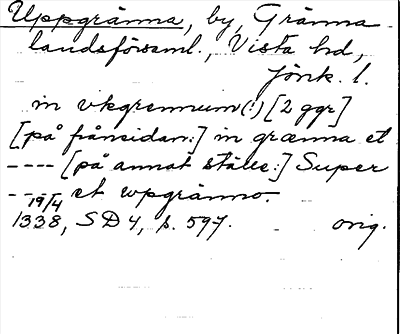 Uppgränna, by, Gränna
landsförsaml., Vista hd,
Jönk. l.
in vkgrennum(!) [2 ggr]
[på frånsidan:] in grænna et
---- [på annat ställe:] Super
---- et wpgränno.
19/4
1338, SD 4, s. 597. orig.